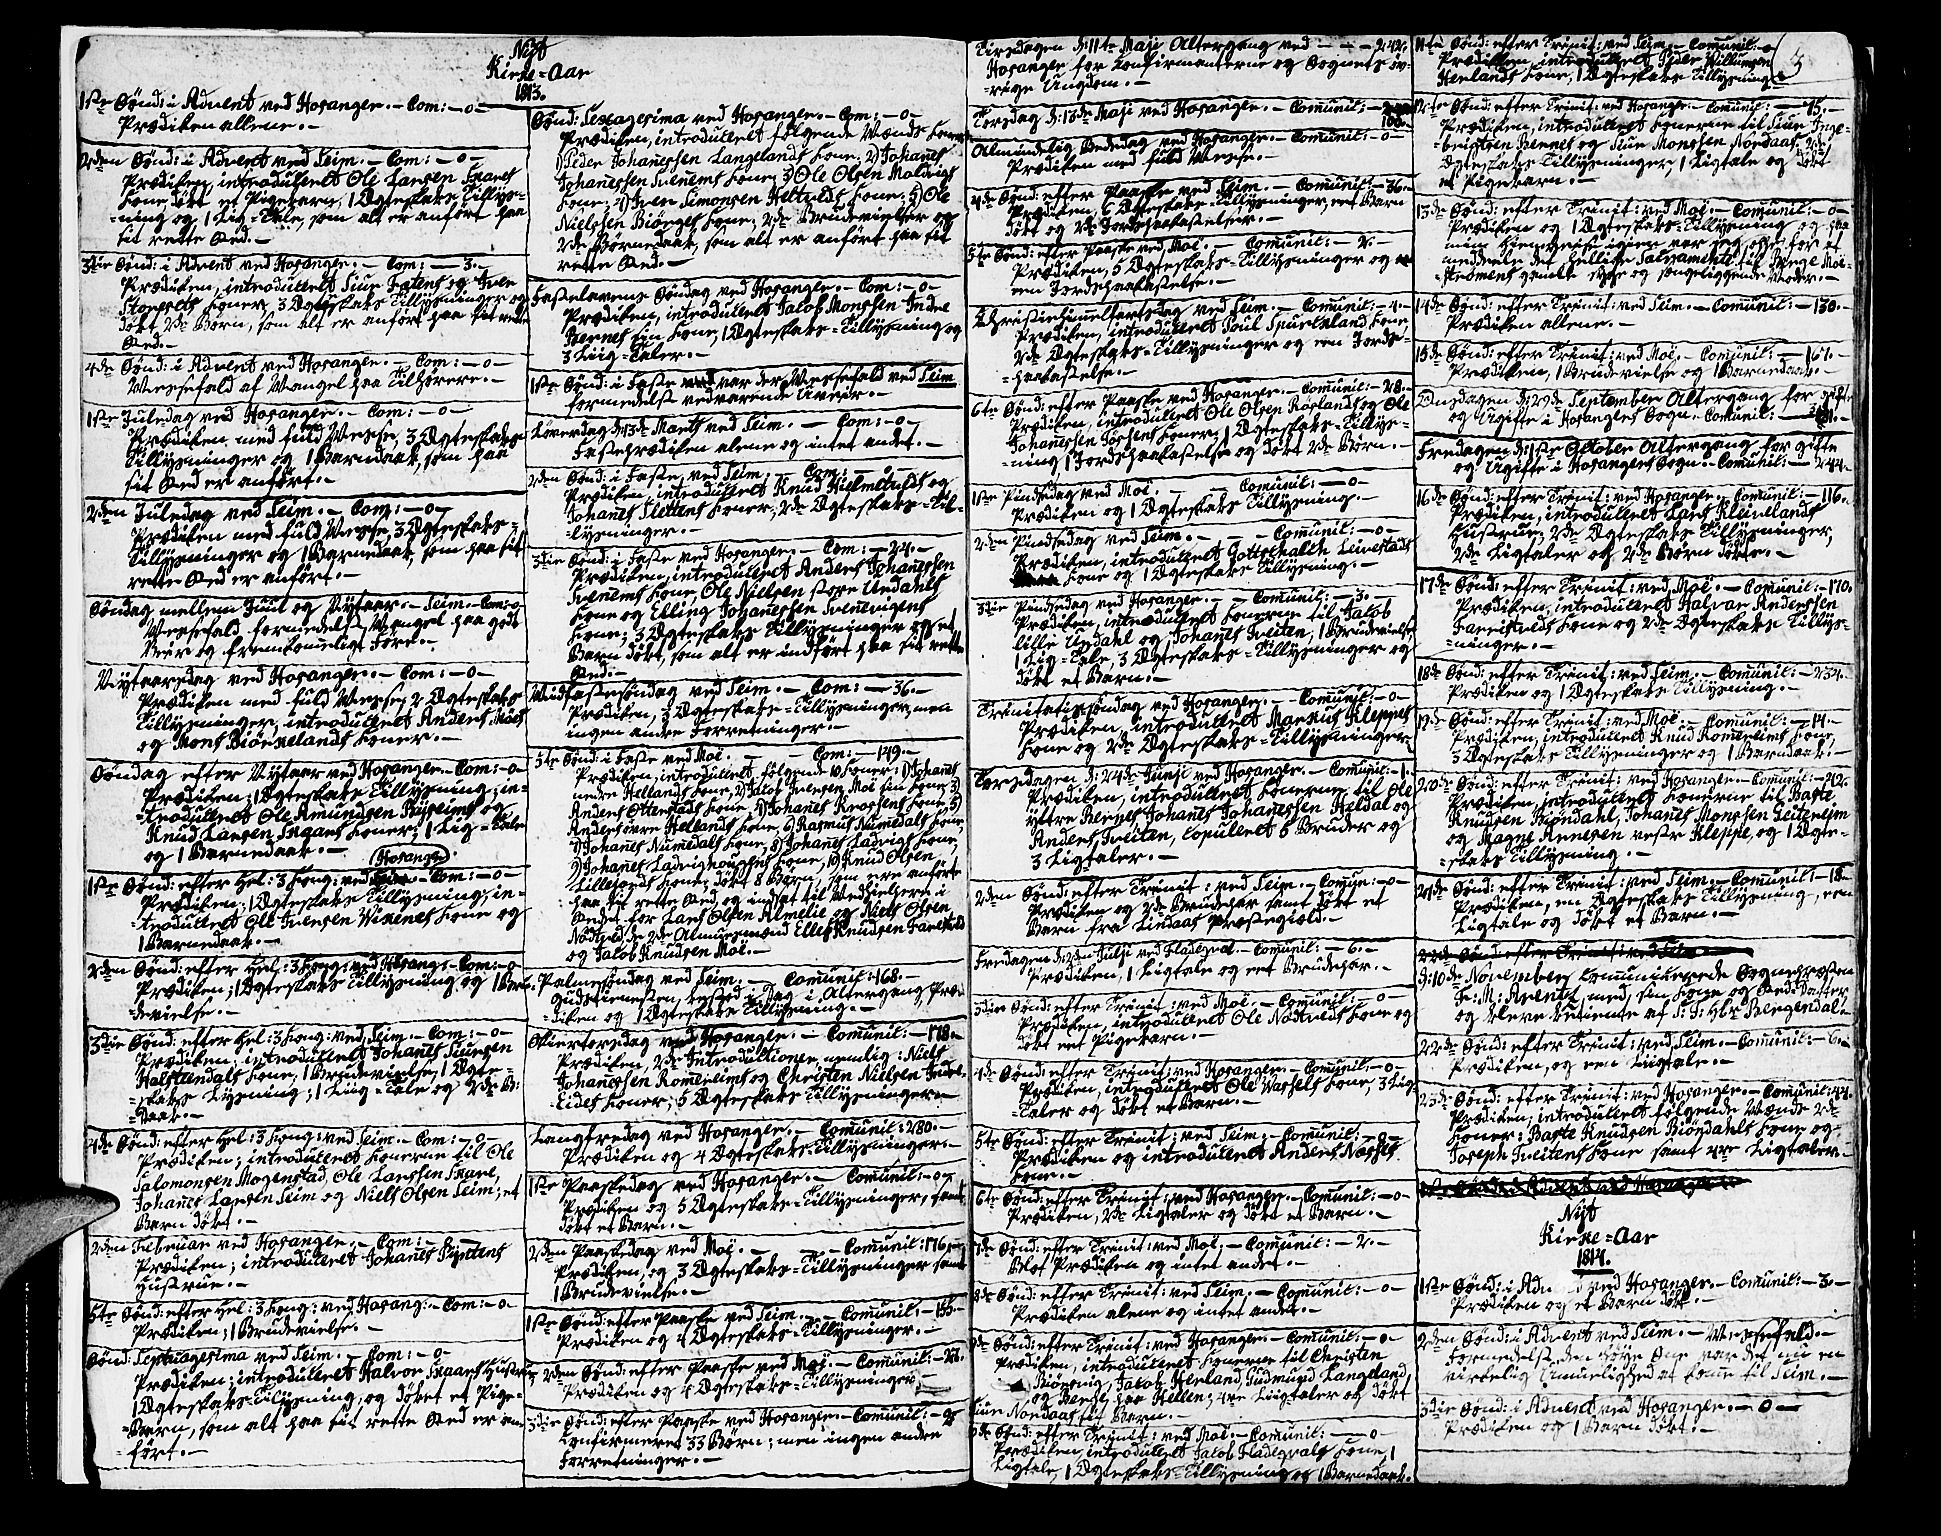 Nyt
Kirke=Aar
1813.
1ste Sönd: i Advent ved Hosanger. - Com: - 0 -
Prædiken allene. -
2den Sönd: i Advent ved Seim. - Com: - 0 -
Prædiken, introduceret Ole Larsen
Kone, döbt et Pigebarn, 1 Ægteskabs Tillys-
=ning og 1 Lig=Tale, som alt er anfört paa
sit rette Sted. -
3die Sönd: i Advent ved Hosanger. - Com: - 3. -
Prædiken, introduceret Siur og
Koner, 3 Ægteskabs Tillysninger og
döbt 2de Börn, som alt er anfört paa sit rette
Sted. -
4de Sönd: i Advent ved Hosanger. - Com: - 0 -
Messefald af Mangel paa Tilhörere. -
1ste Juledag ved Hosanger. - Com: - 0 -
Prædiken med fuld Messe, 3 Ægteskabs
Tillysninger og 1 Barnedaab, som paa
sit Sted er anfört. -
2den Juledag ved Seim. - Com: - 0 -
Prædiken med fuld Messe, 3 Ægteskabs=
Tillysninger og 1 Barnedaab, som paa sit
rette Sted er anfört. -
Söndag mellem Juul og Nytaar. - Seim. - Com: - 0
Messefald formedelst Mangel paa godt
Veir og fremkomeligt Före. -
Nytaarsdag ved Hosanger. - Com: - 0 -
Prædiken med fuld Messe, 2 Ægteskabs
Tillysninger, introduceret Anders
og Mons Biörkelands Koner. -
Söndag efter Nytaar ved Hosanger. - Com: - 0 -
Prædiken; 1 Ægteskabs Tillysning; in-
=troduceret Ole Amundsen og
Knud Larsen Koner; 1 Lig=Tale
og 1 Barnedaab. -
Hosanger
1ste Sönd: efter Hel: 3 Kong: ved - Com: - 0 -
Prædiken; 1 Ægteskabs Tillysning, in-
troduceret Ole Iversen Kone og
1 Barnedaab. -
2den Sönd: efter Hel: 3 Kong: ved Hosang: - Com: - 0
Prædiken; 1 Ægteskabs Tillysning og 1 Brude-
=vielse. -
3die Sönd: efter Hel: 3 Kong: ved Seim. - Com: - 0 -
Prædiken; introduceret Johanes Siursen
Kone, 1 Brudevielse, 1 Ægte-
=skabs Lysning; 1 Liig=Tale og 2de B:
Daab. -
4de Sönd: efter Hel: 3 Kong: ved Seim. - Com: - 0 -
Prædiken; introduceret Konerne til Ole
Salomonsen Mogenstad, Ole Larssen
Johanes Larsen Seim og Niels Olsen Seim; et
Barn döbt. -
2den Februar ved Hosanger. - Com: -
Prædiken; introduceret Johanes
Hustrue. -
5te Sönd: efter Hel: 3 Kong: ved Hosang: - Com: - 0 -
Prædiken; 1 Brudevielse. -
Sönd: Septuagesima ved Seim. - Com: - 0
Prædiken; introduceret Halvor Hustrue
1 Ægteskabs Tillysning, og döbet et Pige-
=Barn, som alt paa sit rette Sted er an-
=fört. -
Sönd: Sexagesima ved Hosanger. - Com: - 0 -
Prædiken, introduceret fölgende Mænds Koner
1) Peder Johanessen Langelands Kone; 2) Johanes
Johanessen Kone; 3) Ole Olsen
Kone; 4) Iver Simonsen Kone; 5) Ole
Nielssen Kone; 2de Brudevielser og
2de Barnedaab, som alt er anfört paa sit
rette Sted. -
Fastelavens Söndag ved Hosanger. - Com: - 0 -
Prædiken, introduceret Jacob Monssen Indre
Bernes Kone, 1 Ægteskabs=Tillysning og
3 Liig=Taler. -
1ste Sönd: i Faste var der Messefald ved Seim
formedelst vedvarende Uveir. -
Löverdag Marts ved Seim. - Com: - 0 -
Fasteprædiken alene og intet andet. -
2den Sönd: i Faste ved Seim. - Com: - 0 -
Prædiken, introduceret Knud og
Johanes Slettens Koner, 2de Ægteskabs=Til-
=lysninger. -
3die Sönd: i Faste ved Hosanger. - Com: - 24. -
Prædiken, introduceret Anders Johanessen
Kone, Ole Nielsen store Updahls
Kone og Elling Johanessen
Kone; 3 Ægteskabs Tillysninger og et
Barn döbt, som alt er indfört paa sit rette
Sted. -
Midfastesöndag ved Seim. - Com: - 36. -
Prædiken, 3 Ægteskabs=Tillysninger, men
ingen andre Forretninger. -
5te Sönd: i Faste ved Moe. - Com: - 149. -
Prædiken, introduceret fölgende 10 Koner: 1) Johanes
nedre Hellands Kone, 2) Jacob Iversen Moe sin Kone, 3)
Anders Kone, 4) Johanes Kone, 5)
Anders övre Hellands Kone, 6) Rasmus Numedals Kone,
7) Johanes Numedals Kone, 8) Johanes Ladvigs Kone,
9) Johanes Kone, 10) Knud Olsen
Kone; döbt 8 Börn, som ere anförte
paa sit rette Sted, og indsat til Medhielpere i
Stedet for Lars Olsen Almelie og Niels Olsen
Nödtved, de 2de Almuesmænd Ellef Knudsen
og Jacob Knudsen Moe. -
Palmesöndag ved Seim. - Comunic: 168. -
Gudstienesten bestod i Dag i Altergang, Præ-
=diken og 1 Ægteskabs Tillysning. -
Skiertorsdag ved Hosanger. - Comunic: - 178. -
Prædiken, 2de Introductioner, nemlig: Niels
Johanessen Romereims og Christen Nielsen
Koner; 5 Ægteskabs Tillysninger. -
Langfredag ved Hosanger. - Comunic: 280. -
Prædiken og 4 Ægteskabs=Tillysninger. -
1ste Paaskedag ved Hosanger. - Comunic: - 0 -
Prædiken og 5 Ægteskabs=Tillysninger, samt
döbt et Barn. -
2den Paaskedag ved Moe. - Comunic: 176. -
Prædiken, og 3 Ægteskabs=Tillysninger samt
1 Brudevielse. -
1ste Sönd: efter Paaske ved Seim. - Comunic: - 155. -
Prædiken og 4 Ægteskabs=Tillysninger. -
2den Sönd: efter Paaske ved Moe. - Comunic: -
Prædiken og 4 Ægteskabs=Tillysninger
3die Sönd: efter Paaske ved Hosanger. - Comunic: -
Confirmeret 33 Börn; men ingen andre
Forretninger. -
Tirsdagen d: 11te Maji Altergang ved - - - 242. -
Hosanger for Confirmanterne og Sognets öv-
=rige Ungdom. -
Torsdag d: 13de Maji ved Hosanger. - Comunic: -
Almindelig Bededag ved Hosanger. - Comunic: - 0 -
Prædiken med fuld Messe. -
4de Sönd: efter Paaske ved Seim. - Comunic: - 36. -
Prædiken, 6 Ægteskabs=Tillysninger, eet Barn
döbt og 2de Jordspaakastelser. -
5te Sönd: efter Paaske ved Moe. - Comunic: - 2. -
Prædiken, 5 Ægteskabs=Tillysninger og
een Jordspaakastelse. -
Christi Himmelfartsdag ved Seim. - Comunic: - 4. -
Prædiken, introduceret Poul Kone,
2de Ægteskabs=Tillysninger og een Jords=
=paakastelse. -
6te Sönd: efter Paaske ved Hosanger. - Comunic: - 28. -
Prædiken, introduceret Ole Olsen Röslands og Ole
Johanessen Koner; 1 Ægteskabs=Tillys-
=ning 1 Jordspaakastelse og döbt 2de Börn. -
1ste Pindsedag ved Moe. - Comunic: - 0 -
Prædiken og 1 Ægteskabs Tillysning. -
2den Pindsedag ved Seim. - Comunic: - 0 -
Prædiken, introduceret Gottschalch
Kone og 1 Ægteskabs Tillysning. -
3die Pindsedag ved Hosanger. - Comunic: - 3. -
Prædiken, introduceret Konerne til Jacob
lille Updahl og Johanes Tveiten, 1 Brudevielse,
1 Lig=Tale, 3 Ægteskabs=Tillysninger og
döbt et Barn. -
Trinitatis söndag ved Hosanger. - Comunic: - 0 -
Prædiken, introduceret Markus Kleppes
Kone og 2de Ægteskabs=Tillysninger. -
Torsdagen d: 24de Junji ved Hosanger. - Comunic: - 1. -
Prædiken, introduceret Konerne til Ole
yttre Bernes Johanes Johanessen Heldal og
Anders Tveiten, copuleret 6 Bruder og
3 Ligtaler. -
2den Sönd: efter Trinit: ved Seim. - Comun: - 0 -
Prædiken og 2de Brudepar samt döbt et
Barn fra Lindaas Præstegield. -
Fredagen d: 2den Julji ved Fladeqval. - Comunic: - 6. -
Prædiken, 1 Ligtale og eet Brudepar. -
3die Sönd: efter Trinit: ved Moe. - Comunic: - 0 -
Prædiken, introduceret Ole Nödtveds Kone og
döbt eet Pigebarn. -
4de Sönd: efter Trinit: ved Hosanger. - Comunic: - 0 -
Prædiken, introduceret Ole Kone, 3 Lig-
=Taler og döbt et Barn. -
5te Sönd: efter Trinit: ved Seim. - Comunic: - 0 -
Prædiken og introduceret Anders
Kone. -
6te Sönd: efter Trinit: ved Hosanger. - Comunic: - 0 -
Prædiken, 2de Ligtaler og döbt et Barn. -
7de Sönd: efter Trinit: ved Moe. - Comunic: - 2. -
Blot Prædiken og intet andet. -
8de Sönd: efter Trinit: ved Seim. - Comunic: - 0
Prædiken alene og intet andet. -
9de Sönd: efter Trinit: ved Hosanger. - Comunic: - 0 -
Prædiken, introduceret Konerne til Christen
Jacob Herland, Gudmund Langeland,
og Bernt paa Hellen; 4re Liigtaler og döbt
Siur Nordaas sit Barn. -
10de Sönd: efter Trinit: ved Moe. - Comunic: - 0 -
Prædiken, introduceret Jacob Fladeqvals Kone, 1
Ligtale, 1 Ægteskabs=Tillysning og 1 Barnedaab.
11te Sönd: efter Trinit: ved Seim. - Comunic: - 0
Prædiken, introduceret Peder Willumsen
Herlands Kone, 1 Ægteskabs Tillysning
3
12te Sönd: efter Trinit: ved Hosanger. - Comunic: - 75. -
Prædiken, introduceret Konerne til Siur Inge-
brigtsen Bernes og Siur Monssen Nordaas, 2de
Ægteskabs Tillysninger, 1 Ligtale og döbt
et Pigebarn. -
13de Sönd: efter Trinit: ved Moe. - Comunic: - 0 -
Prædiken og 1 Ægteskabs Tillysning og paa
min Hiemreise igien var jeg oppe for at
meddeele det hellige Sacramente til Börge Moe-
=stromens gamle syge og sengeliggende Moder. -
14de Sönd: efter Trinit: ved Seim. - Comunic: - 130. -
Prædiken allene. -
15de Sönd: efter Trinit: ved Moe. - Comunic: - 167. -
Prædiken, 1 Brudevielse og 1 Barnedaab. -
Onsdagen d: 29de September Altergang for gifte
og Ugifte i Hosangers Sogn. - Comunic: -
Fredagen d: 1ste October Altergang for gifte
og Ugifte i Hosangers Sogn. - Comunic: - 244. -
16de Sönd: efter Trinit: ved Hosanger. - Comunic: - 116. -
Prædiken, introduceret Lars Kleivelands
Hustrue, 2de Ægteskabs Tillysninger,
2de Ligtaler og 2de Börn döbte. -
17de Sönd: efter Trinit: ved Moe. - Comunic: - 170. -
Prædiken, introduceret Halvor Anderssen
Kone og 2de Ægteskabs Tillys-
=ninger. -
18de Sönd: efter Trinit: ved Seim. - Comunic: - 234. -
Prædiken og 1 Ægteskabs Tillysning. -
19de Sönd: efter Trinit: ved Moe. - Comunic: - 14. -
Prædiken, introduceret Knud Romereims Kone,
3 Ægteskabs Tillysninger og 1 Barnedaab. -
20de Sönd: efter Trinit: ved Hosanger. - Comunic: - 42. -
Prædiken, introduceret Konerne til Baste
Knudsen Biöndahl, Johanes Monssen
og Magne Arnesen Kleppe, og 1 Ægte-
=skabs Tillysning. -
21de Sönd: efter Trinit: ved Seim. - Comunic: - 18. -
Prædiken, en Ægteskabs Tillysning, een
Ligtale og döbt et Barn. -
d: 10de November Comunicerede Sognepræsten
Fr: M: Arentz, med sin Kone og Sted=Datter
og bleve betiente af S: T: Hr. Bergendal. -
22de Sönd: efter Trinit: ved Seim. - Comunic: - 6. -
Prædiken, og een Liigtale. -
23de Sönd: efter Trinit: ved Hosanger. - Comunic: 44.
Prædiken; introduceret fölgende Mænds 2de
Koner: Baste Knudsen Biöndahls Kone og
Joseph Tveitens Kone samt 4re Ligtaler
Nyt
Kirke=Aar
1814.
1ste Sönd: i Advent ved Hosanger. - Comunic: - 3. -
Prædiken og et Barn döbt. -
2den Sönd: i Advent ved Seim. - Messefald. -
Formedelst den Snee var det mig en
virkelig Umuelighed at komme til Seim. -
3die Sönd: i Advent ved Hosanger. - 0 -
Prædiken og 1 Barn döbt. -